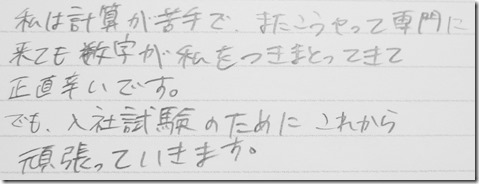 私は計算が苦手で、またこうやって専門に
来ても数字が私をつきまとってきて
正直辛いです。
でも、入社試験のためにこれから
頑張っていきます。